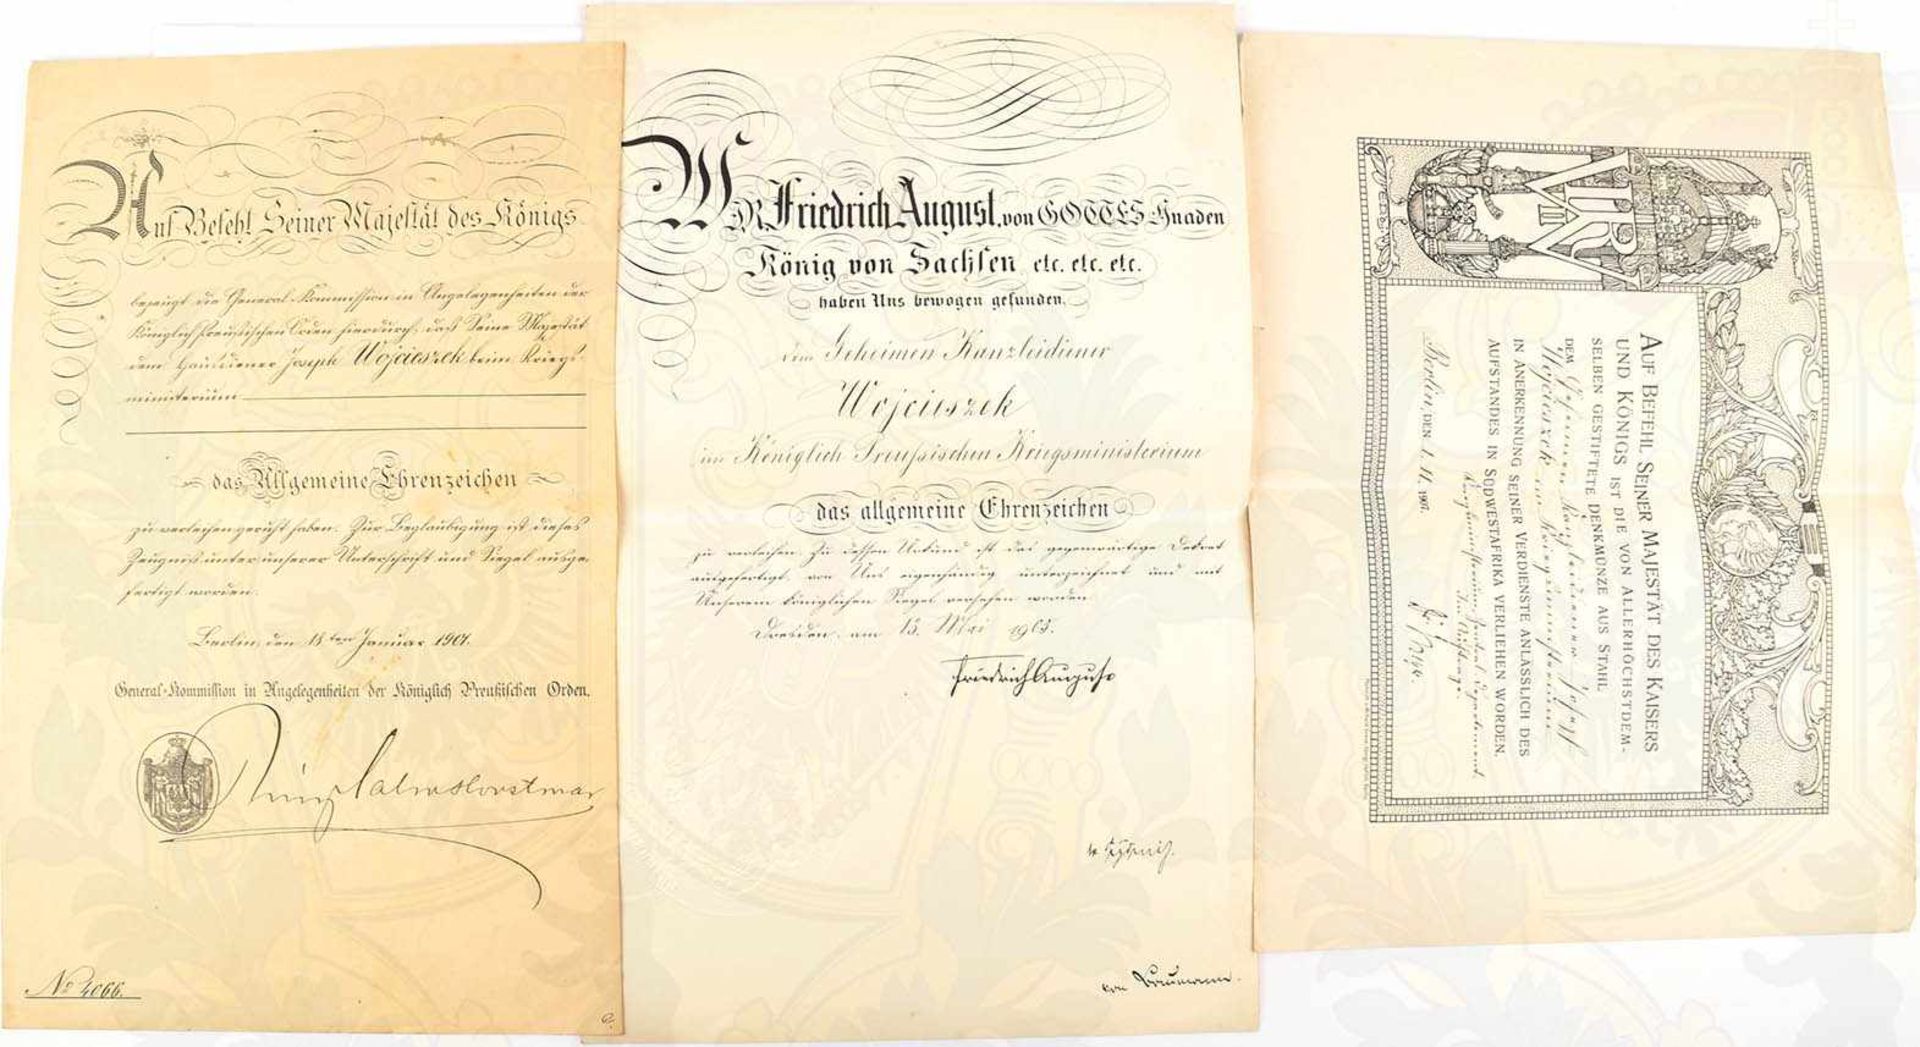 Auf Befehl Seiner Majestät des Königs
bezeugt die General-Kommission in Angelegenheiten der
Königlich Preußischen Orden hierdurch, daß Seine Majestät
dem Hausdiener Joseph Wojcieszek beim Kriegs-
ministerium
das Allgemeine Ehrenzeichen
zu verleihen geruht haben. Zur Beglaubigung ist dieses
Zeugniß unter unserer Unterschrift und Siegel ausge-
fertigt worden.
Berlin, den 18ten Januar 1901.
General-Kommission in Angelegenheiten der Königlich Preußischen Orden.
Salm Horstmar
No 4066.
WIR Friedrich August, von GOTTES Gnaden
König von Sachsen etc. etc. etc.
haben Uns bewogen gefunden,
dem Geheimen Kanzleidiener
Wojcieszek
im Königlich Preußischen Kriegsministerium
das allgemeine Ehrenzeichen
zu verleihen. Zu dessen Urkund ist das gegenwärtige Dekret
ausgefertigt, von Uns eigenhändig unterzeichnet und mit
Unserem Königlichen Siegel versehen worden.
Dresden, am 13. Mai 1905.
Friedrich August
von
AUF BEFEHL SEINER MAJESTÄT DES KAISERS
UND KÖNIGS IST DIE VON ALLERHÖCHSTDEM-
SELBEN GESTIFTETE DENKMÜNZE AUS STAHL
DEM Geheimen Kanzleidiener Josef
Wojcieszek im Kriegsministerium
IN ANERKENNUNG SEINER VERDIENSTE ANLÄSSLICH DES
AUFSTANDES IN SÜDWESTAFRIKA VERLIEHEN WORDEN.
Kriegsministerium, Zentral-Departement.
Berlin, DEN 1. 11. 1907.